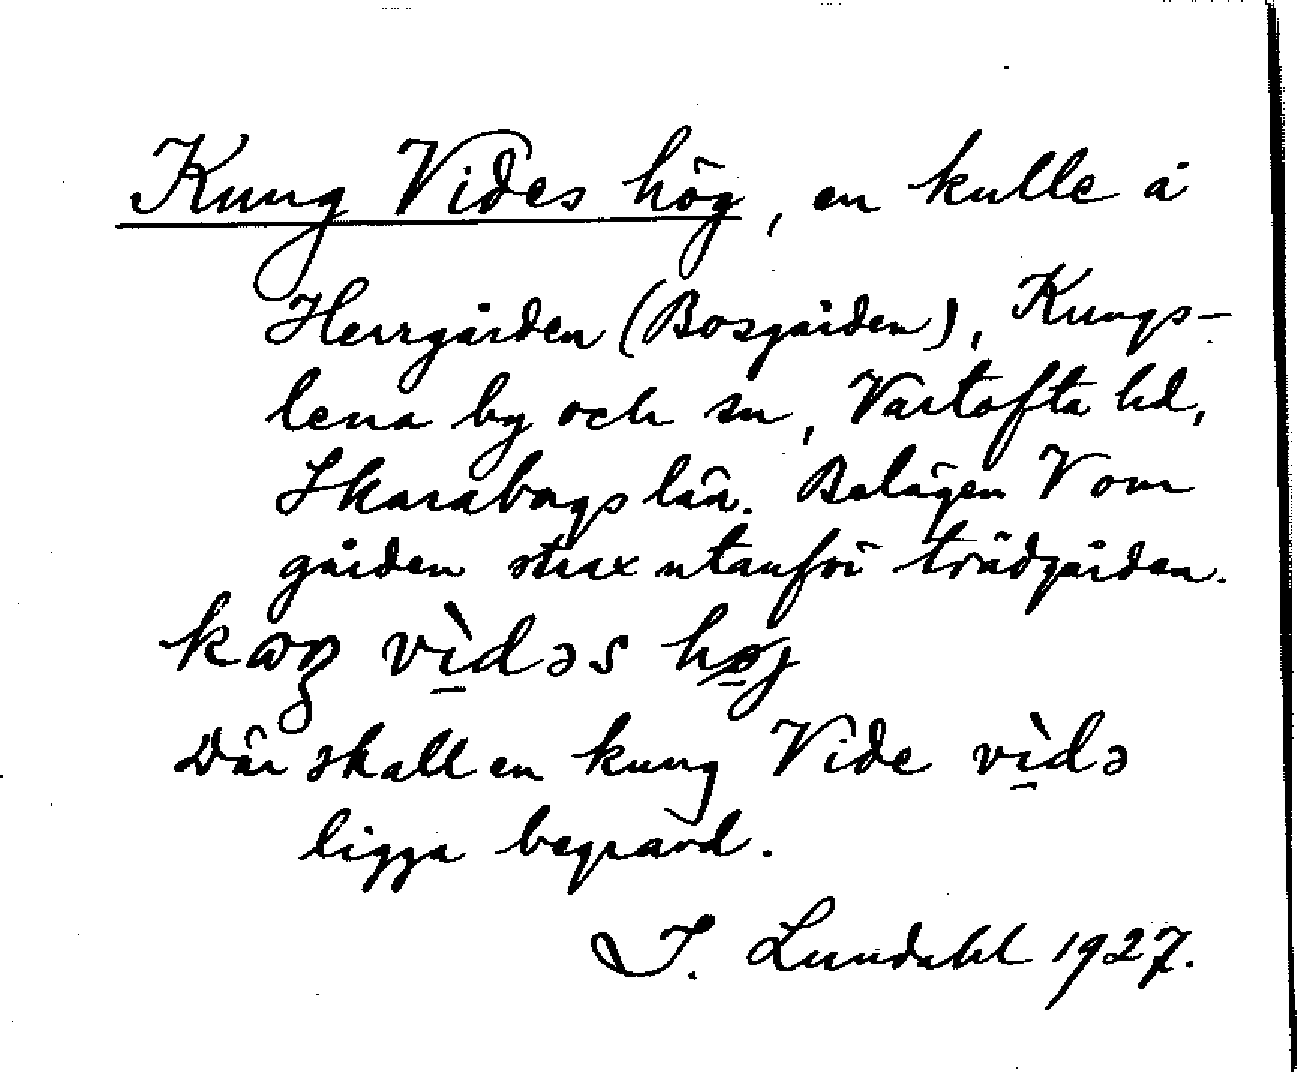 Kung Vides hög, en kulle å
Herrgården (Bosgården), Kungs-
lena by och sn, Vartofta hd,
Skaraborgs län. Belägen V om
gården strax utanför trädgården.
vìdəs
Där skall en kung Vide vìdə
ligga begravd.
I. Lundahl 1927.